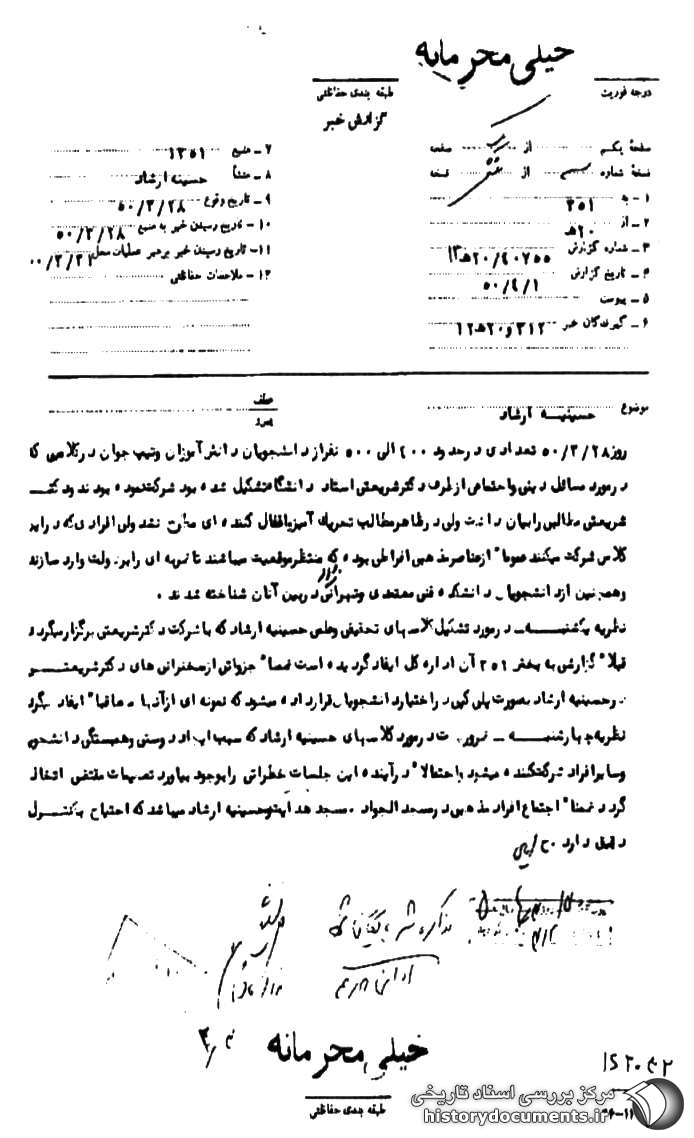 خیلی محرمانه
درجه فوریت
طبقه بندی حفاظتی
گزارش خبر
صفحهٔ یکم از صفحه
نسخهٔ شماره از نسخه
۱ـ به ۳۵۱
۲ـ از ۲۰هـ
۳ـ شماره گزارش ۲۰/۴۰۷۵۵هـ۱۲
۴ـ تاریخ گزارش ۵۰/۴/۱
۵ـ پیوست
۶ـ گیرندگان خبر ۳۱۲ و ۲۰هـ۱۲
۷ـ منبع ۱۳۵۱
۸ـ منشأ حسینه ارشاد
۹ـ تاریخ وقوع ۵۰/۳/۲۸
۱۰ـ تاریخ رسیدن خبر به منبع ۵۰/۳/۲۸
۱۱ـ تاریخ رسیدن خبر برهبر عملیات محل
۱۲ـ ملاحظات حفاظتی
موضوع حسینیه ارشاد
عطف
پیرو
روز ۵۰/۳/۲۸ تعدادی در حدود ۴۰۰ الی ۵۰۰ نفر از دانشجویان دانش‌آموزان وتیپ جوان در کلاسی که
در مورد مسائل دینی واجتماعی از طرف دکتر شریعتی استاد دانشگاه تشکیل شده بود شرکت نموده بودند ودکتر
شریعتی مطالبی را بیان داشت ولی در ظاهر مطالب تحریک آمیز یا اغفال کننده ای مطرح نشد ولی افرادی که در این
کلاس شرکت میکنند عموما" از عناصر مذهبی افراطی بوده که منتظر موقعیت میباشند تا ضربه ای را بر دولت وارد سازند
وهمچنین از دانشجویان دانشکده فنی معتمدی وتهرانی در بین آنان شناخته شدند ۰
نظریه یکشنبه ـ در مورد تشکیل کلاسهای تحقیقی وعلمی حسینیه ارشاد که با شرکت دکتر شریعتی برگزار میگردد
قبلا" گزارشی به بخش ۳۵۱ آن اداره کل ایفاد گردیده است ضمنا" جزواتی از سخنرانی های دکتر شریعتی
در حسینیه ارشاد بصورت پلی کپی در اختیار دانشجویان قرار داده میشود که نمونه ای از آنها متعاقبا" ایفاد میگردد
نظریه چهارشنبه ـ در مورد کلاسهای حسینیه ارشاد که سبب ایجاد دوستی وهمبستگی دانشجویان
وسایر افراد شرکت کننده میشود احتمالا" در آینده این جلسات خطراتی را بوجود بیاورد تصمیمات مقتضی اتخاذ
گردد ضمنا" اجتماع افراد مذهبی در مسجد الجواد ۰ مسجد هدایت وحسینیه ارشاد میباشد که احتیاج بکنترل
دقیق دارد
خیلی محرمانه
طبقه بندی حفاظتی
مرکز بررسی اسناد تاریخی
historydocuments.ir